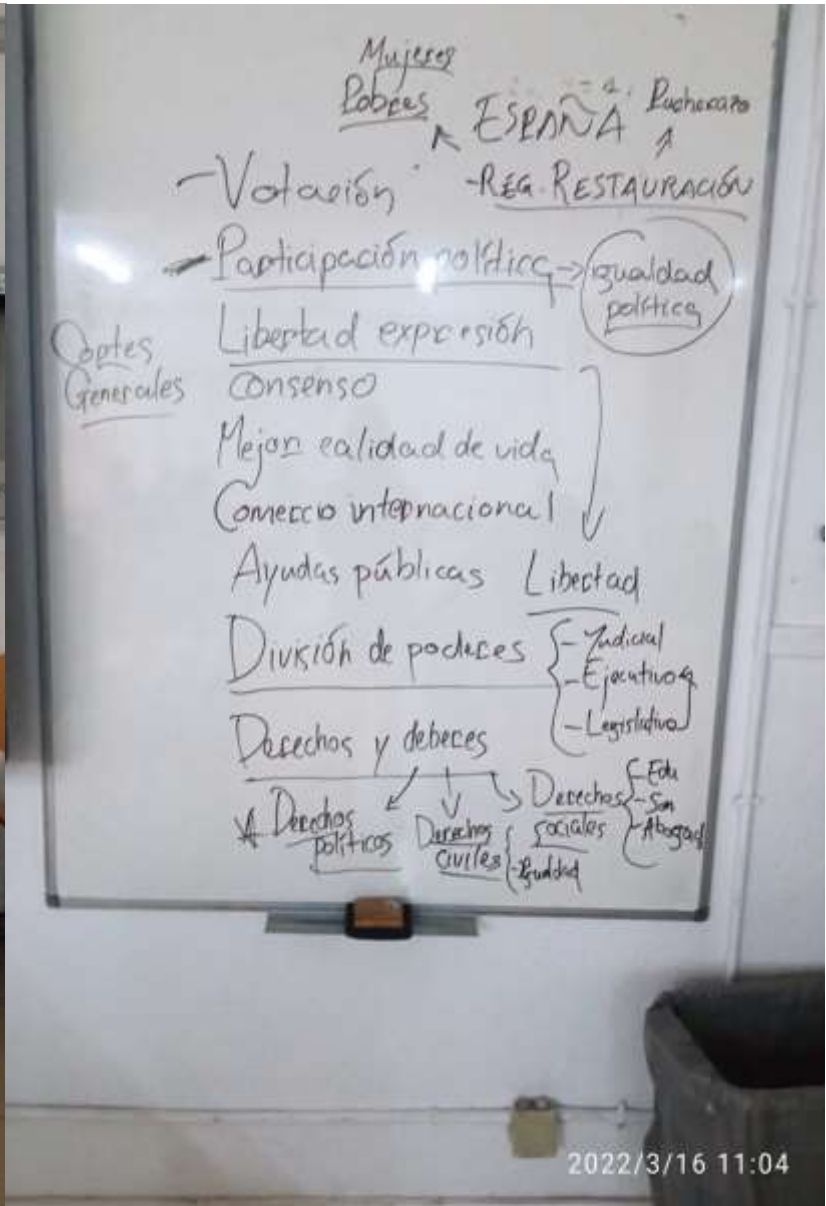 Mujeres
Pobres
ESPAÑA
Pucherazo
-Votación
-RÉG. RESTAURACIÓN
-Participación política → igualdad política
Libertad expresión
Cortes
Generales
Consenso
Mejor calidad de vida
Comercio internacional
Ayudas públicas
Libertad
División de poderes
- Judicial
- Ejecutivo
- Legislativo
Derechos y deberes
Derechos políticos
Derechos civiles
- Igualdad
Derechos sociales
- Edu
- San
- Abogad
2022/3/16 11:04